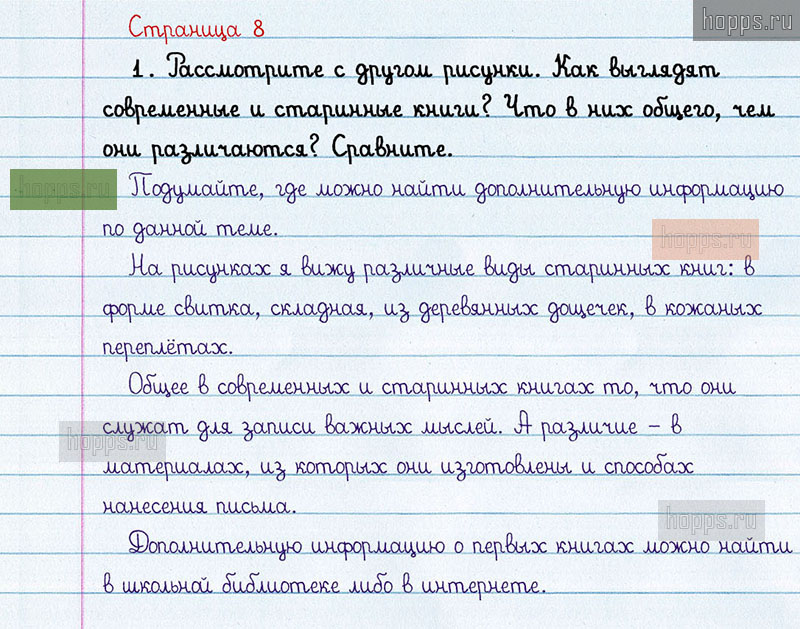 hopps.ru
Страница 8
1. Рассмотрите с другом рисунки. Как выглядят
современные и старинные книги? Что в них общего, чем
они различаются? Сравните.
hopps.ru
Подумайте, где можно найти дополнительную информацию
по данной теме.
hopps.ru
На рисунках я вижу различные виды старинных книг: в
форме свитка, складная, из деревянных дощечек, в кожаных
переплётах.
Общее в современных и старинных книгах то, что они
служат для записи важных мыслей. А различие – в
hopps.ru
материалах, из которых они изготовлены и способах
нанесения письма.
hopps.ru
Дополнительную информацию о первых книгах можно найти
в школьной библиотеке либо в интернете.